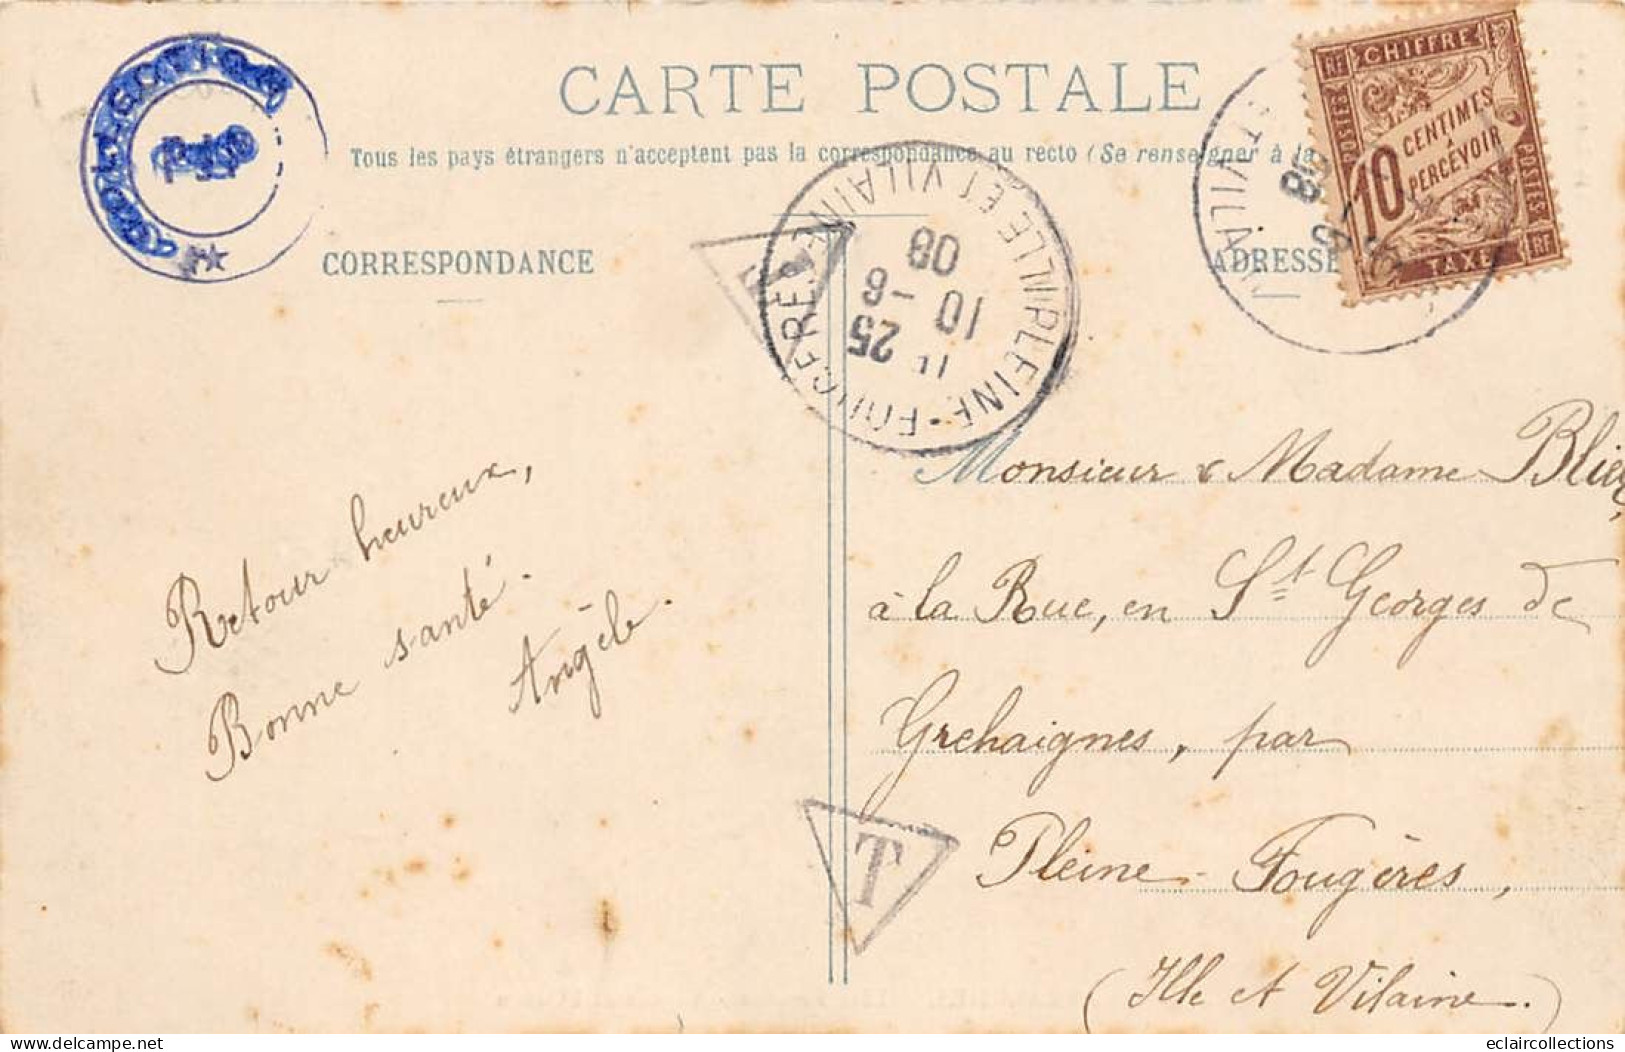 CARTE POSTALE
Tous les pays étrangers n'acceptent pas la correspondance au recto (Se renseigner à la
CORRESPONDANCE
ADRESSE
RF CHIFFRE
POSTES
10 CENTIMES
À
PERCEVOIR
POSTES
TAXE RF
ET VILAI
08
PLEINE-FOUGERES
ILLE ET VILAINE
25
10 - 8
08
T
Monsieur & Madame
à la Rue, en St Georges de
Grehaignes, par
Pleine-Fougères,
(Ille et Vilaine.)
Retour heureux,
Bonne santé.
Angèle.
T
delcampe.net
eclaircollections